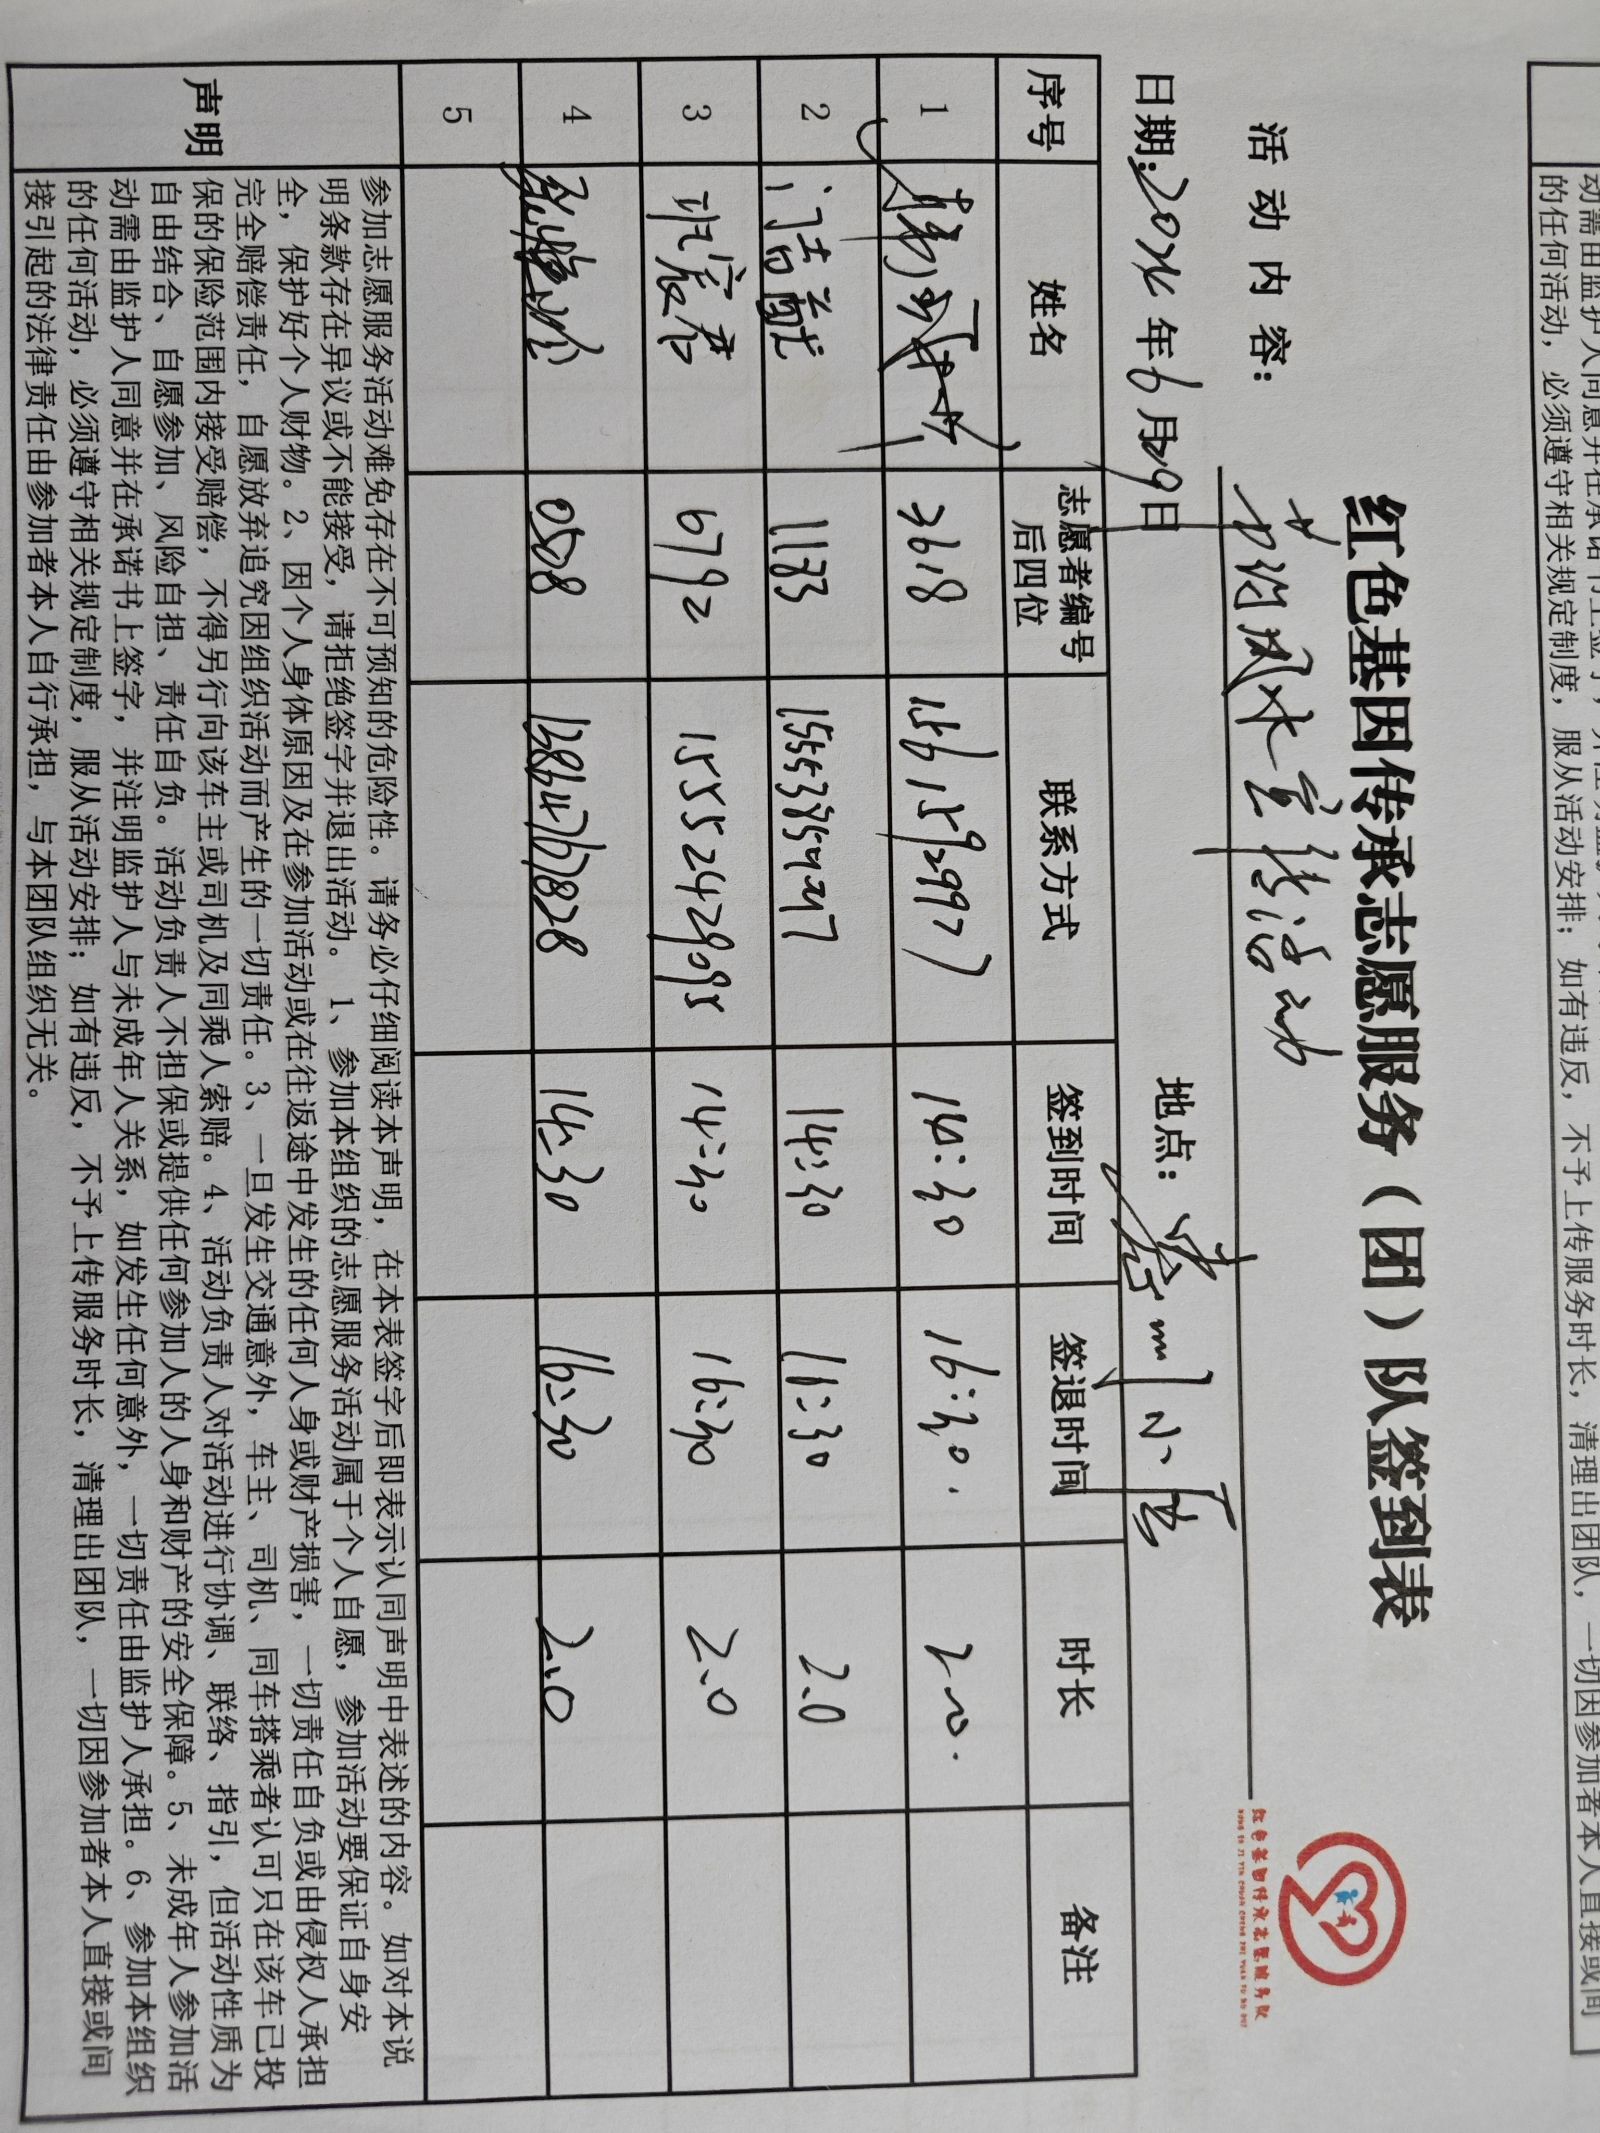 红色基因传承志愿服务（团）队签到表
红色基因传承志愿服务队
活动内容：
日期：2024年6月29日 地点：
序号 姓名 志愿者编号后四位 联系方式 签到时间 签退时间 时长 备注
1 3618 15615929977 14:30 16:30. 2.0.
2 1183 14:30 16:30 2.0
3 6792 15552428095 14:30 16:30 2.0
4 0508 13864767828 14:30 16:30 2.0
5
声明
参加志愿服务活动难免存在不可预知的危险性。请务必仔细阅读本声明，在本表签字后即表示认同声明中表述的内容。如对本说
明条款存在异议或不能接受，请拒绝签字并退出活动。1、参加本组织的志愿服务活动属于个人自愿，参加活动要保证自身安
全，保护好个人财物。2、因个人身体原因及在参加活动或在往返途中发生的任何人身或财产损害，一切责任自负或由侵权人承担
完全赔偿责任，自愿放弃追究因组织活动而产生的一切责任。3、一旦发生交通意外，车主、司机、同车搭乘者认可只在该车已投
保的保险范围内接受赔偿，不得另行向该车主或司机及同乘人索赔。4、活动负责人对活动进行协调、联络、指引，但活动性质为
自由结合、自愿参加、风险自担、责任自负。活动负责人不担保或提供任何参加人的人身和财产的安全保障。5、未成年人参加活
动需由监护人同意并在承诺书上签字，并注明监护人与未成年人关系，如发生任何意外，一切责任由监护人承担。6、参加本组织
的任何活动，必须遵守相关规定制度，服从活动安排；如有违反，不予上传服务时长，清理出团队，一切因参加者本人直接或间
接引起的法律责任由参加者本人自行承担，与本团队组织无关。